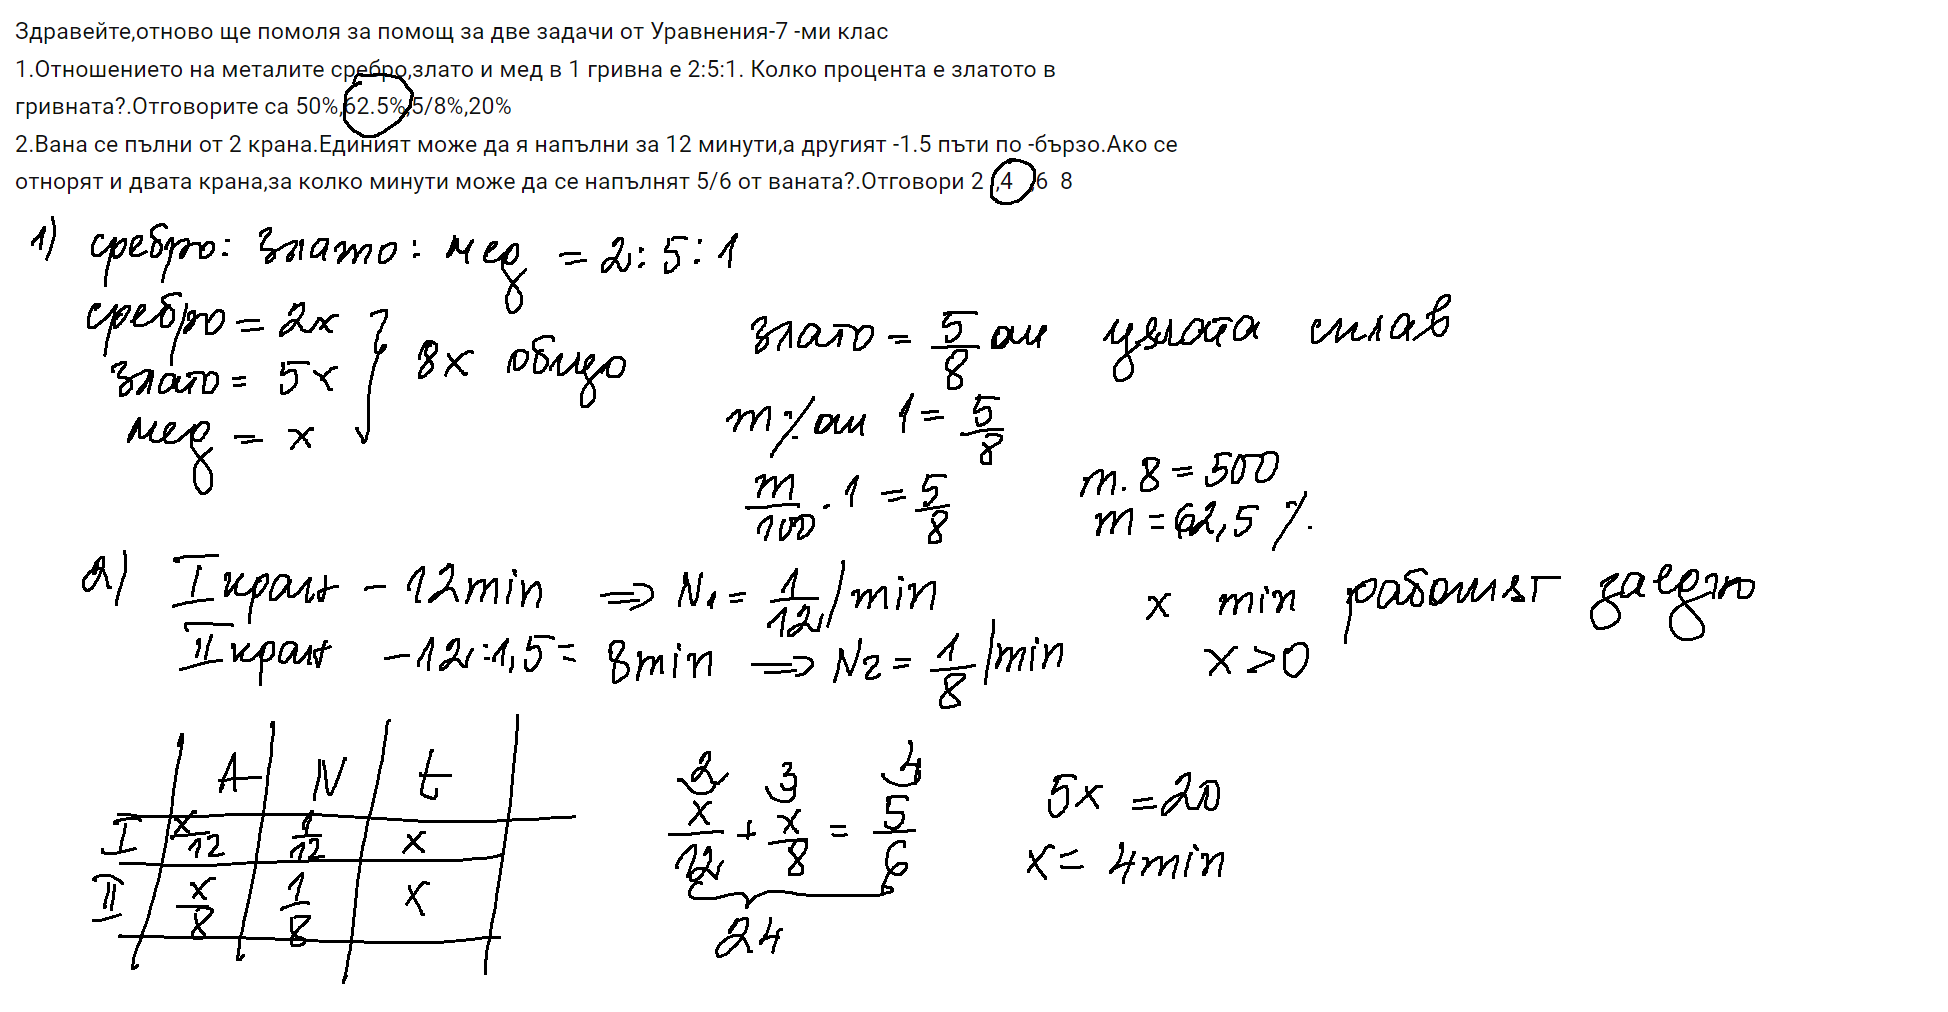 Здравейте,отново ще помоля за помощ за две задачи от Уравнения-7 -ми клас
1.Отношението на металите сребро,злато и мед в 1 гривна е 2:5:1. Колко процента е златото в
гривната?.Отговорите са 50%,62.5%,5/8%,20%
2.Вана се пълни от 2 крана.Единият може да я напълни за 12 минути,а другият -1.5 пъти по -бързо.Ако се
отнорят и двата крана,за колко минути може да се напълнят 5/6 от ваната?.Отговори 2 ,4 ,6 8
1) сребро: злато: мед = 2:5:1
сребро = 2x
злато = 5x
мед = x
8x общо
злато = 5/8 от цялата сплав
m% от 1 = 5/8
m/100 . 1 = 5/8
m. 8 = 500
m = 62,5 %.
2) I кран - 12 min => N1 = 1/12 /min
II кран - 12:1,5 = 8 min => N2 = 1/8 /min
x min работят заедно
x > 0
A N t
I x/12 1/12 x
II x/8 1/8 x
2 3 4
x/12 + x/8 = 5/6
24
5x = 20
x = 4 min